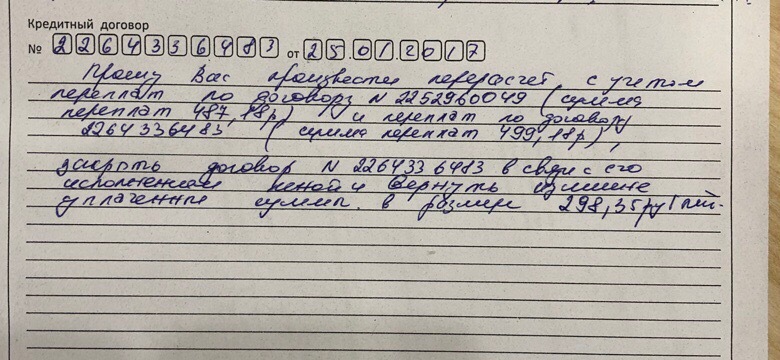 Кредитный договор
№ 2264336483 от 25.01.2017
Прошу Вас произвести перерасчет с учетом
переплат по договору N 2252960049 (сумма
переплат 487,18р) и переплат по договору
2264336483 (сумма переплат 499,18р),
закрыть договор N 2264336483 в связи с его
исполнением мной и вернуть излишне
уплаченные суммы в размере 298,35 руб